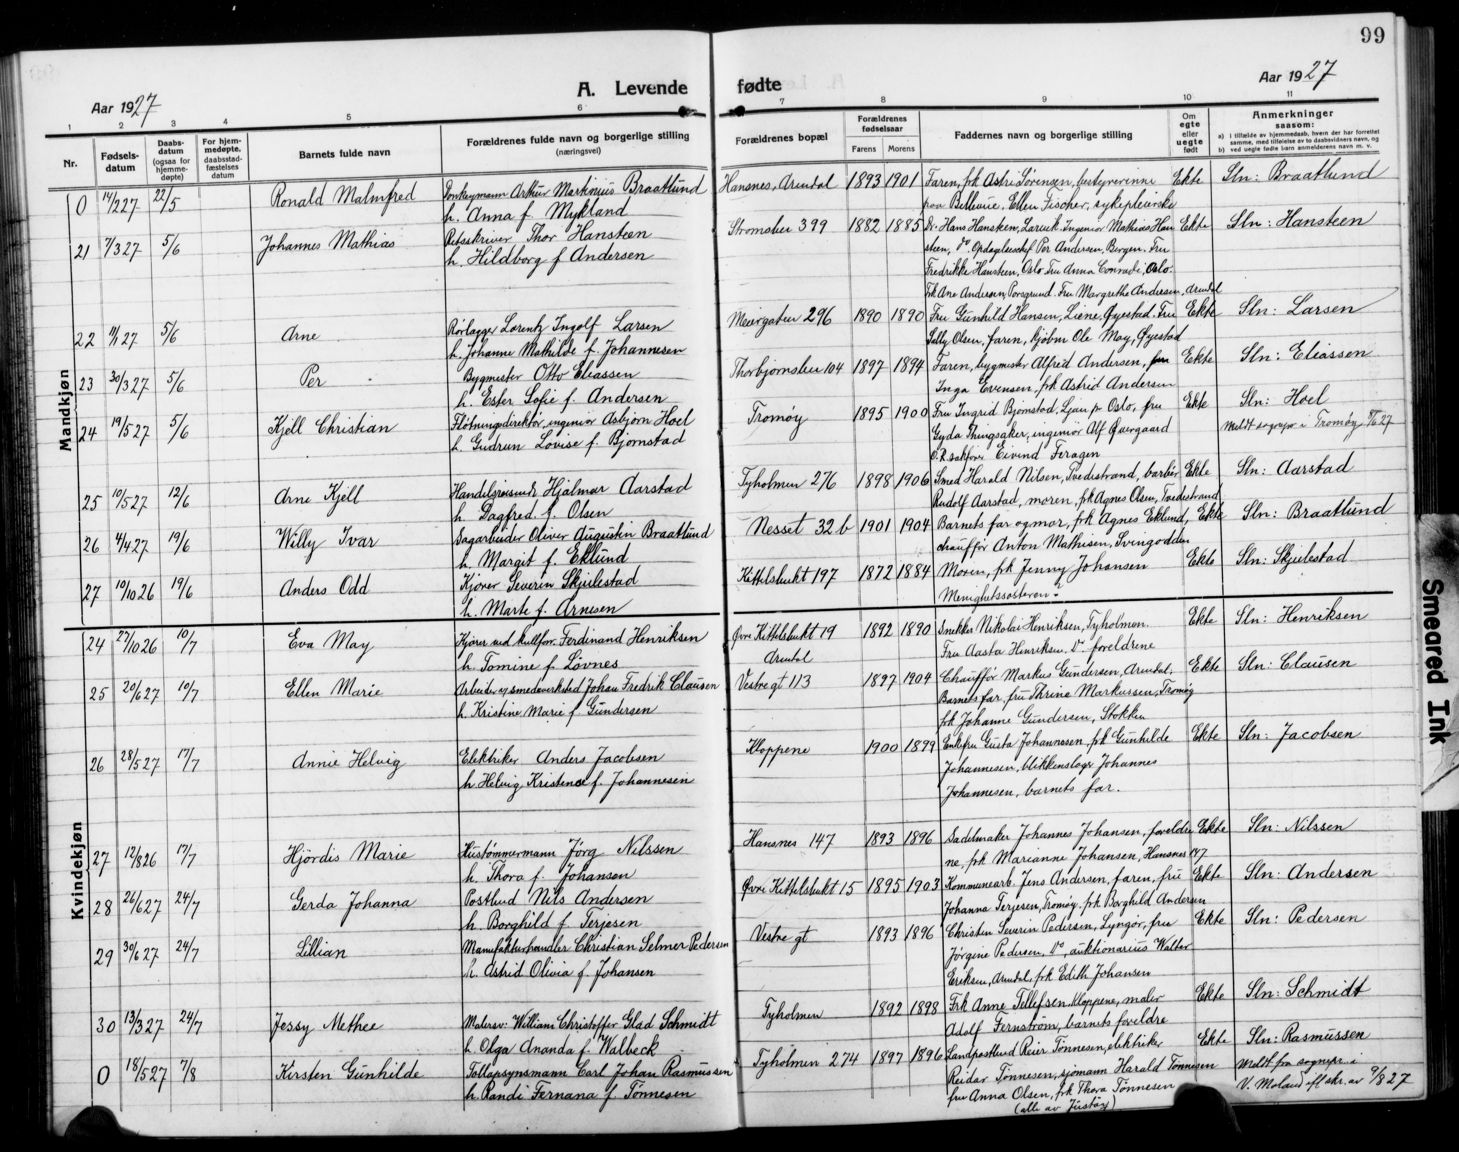 99
Aar 1927
A. Levende fødte
Aar 1927
1 2 3 4 5 6 7 8 9 10 11
Nr.
Fødsels-datum
Daabs-datum (ogsaa for hjemme-døpte)
For hjem-medøpte, daabsstad-fæstelses datum
Barnets fulde navn
Forældrenes fulde navn og borgerlige stilling (næringsvei)
Forældrenes bopæl
Forældrenes fødselsaar
Farens Morens
Faddernes navn og borgerlige stilling
Om egte eller uegte født
Anmerkninger saasom:
a) I tilfælde av hjemmedaab, hvem der har forrettet samme, med tilføielse av to daabsvidners navn, og
b) ved uegte fødte barn anmelderens navn m. v.
Mandkjøn
0 14/2 27 22/5 Ronald Malmfred Donkeymann Arthur Martinius Braatlund Hansnes, Arendal 1893 1901 Faren, frk Astri Sørensen, bestyrerinne Ekte Sln: Braatlund
h. Anna f. Mykland paa Bellevue, Ellen Fischer, sykepleierske
21 7/3 27 5/6 Johannes Mathias Retsskriver Thor Hansteen Strømsbu 399 1882 1885 Dr. Hans Hansteen, Larvik, Ingeniør Mathias Han Ekte Sln: Hansteen
h. Hildborg f Andersen steen, do. Opdagelseschef Per Andersen, Bergen. Fru
Fredrikke Hansteen, Oslo. Fru Anna Conradi, Oslo.
Frk Ane Andersen, Porsgrund. Fru Margrethe Andersen, Arendal
22 11/1 27 5/6 Arne Rørlægger Lorentz Ingolf Larsen 296 1890 1890 Fru Gunhild Hansen, Liene, Øyestad. Fru Ekte Sln: Larsen
h. Johanne Mathilde f. Johannesen Sally Olsen, faren, kjøbm Ole May, Øyestad
23 30/3 27 5/6 Per Bygmester Otto Eliassen Thorbjørnsbu 104 1897 1894 Faren, bygmester Alfred Andersen, fru Ekte Sln: Eliassen
h. Ester Sofie f. Andersen Inga Evensen, frk Astrid Andersen
24 19/5 27 5/6 Kjell Christian Fløtningsdirektør, ingeniør Asbjørn Hoel Tromøy 1895 1900 Fru Ingrid Bjørnstad, Ljan pr Oslo, fru Ekte Sln: Hoel
h. Gudrun Lovise f. Bjørnstad Gyda Thingsaker, ingeniør Alf Quergaard Meldt sogepr i Tromøy 8/6 27
O.R.sakfører Eivind Feragen
25 10/5 27 12/6 Arne Kjell Handelsreisende Hjalmar Aarstad Tyholmen 276 1898 1906 Smed Harald Nilsen, Tvedestrand, barber Ekte Sln: Aarstad
h. Dagfred f. Olsen Rudolf Aarstad, moren, frk Agnes Olsen, Tvedestrand
26 4/4 27 19/6 Willy Ivar Sagarbeider Oliver Augustin Braatlund Nesset 32 b 1901 1904 Barnets far og mor, frk Agnes Eklund, Ekte Sln: Braatlund
h. Margit f. Eklund chauffør Anton Mathisen, Svingodden
27 10/10 26 19/6 Anders Odd Kjører Severin Skjulestad Kittelsbukt 197 1872 1884 Moren, frk Jenny Johansen Ekte Sln: Skjulestad
h. Marte f. Arnesen Menighetssøsteren.
Kvindekjøn
24 27/10 26 10/7 Eva May Kjører ved kullfor. Ferdinand Henriksen Øvre Kittelsbukt 19 1892 1890 Snekker Nikolai Henriksen, Tyholmen. Ekte Sln: Henriksen
h. Tomine f. Løvnes Arendal Fru Aasta Henriksen, do. foreldrene
25 20/6 27 10/7 Ellen Marie Arbeider v smedeverksted Johan Fredrik Clausen Vestregt 113 1897 1904 Chauffør Markus Gundersen, Arendal, Ekte Sln: Clausen
h. Kristine Marie f. Gundersen Barnets far, fru Thrine Markussen, Tromøy
frk Johanne Gundersen, Stokken
26 28/5 27 17/7 Annie Helvig Elektriker Anders Jacobsen Kloppene 1900 1899 Enkefru Gusta Johannesen, frk Gunhilde Ekte Sln: Jacobsen
h. Helvig Kristence f. Johannesen Johannesen, blikkenslager Johannes
Johannesen, barnets far.
27 12/8 26 17/7 Hjørdis Marie Hustømmermann Jörg Nilssen Hansnes 147 1893 1896 Sadelmaker Johannes Johansen, foreldre Ekte Sln: Nilssen
h. Thora f. Johansen ne, frk Marianne Johansen, Hansnes 147
28 26/6 27 24/7 Gerda Johanna Postbud Nils Andersen Øvre Kittelsbukt 15 1895 1903 Kommunearb. Jens Andersen, faren, fru Ekte Sln: Andersen
h. Borghild f. Terjesen Johanna Terjesen, Tromøy, frk Borghild Andersen
29 30/6 27 24/7 Lillian Manufakturhandler Christian Selmer Pedersen Vestre gt 1893 1896 Christen Severin Pedersen, Lyngør, fru Ekte Sln: Pedersen
h. Astrid Olivia f. Johansen Jørgine Pedersen, do, auktionarius Walter
Eriksen, Arendal, frk Edith Johansen
30 13/3 27 24/7 Jessy Methee Malersv. William Christoffer Glad Schmidt Tyholmen 1892 1898 Frk Anne Tellefsen, Kloppene, maler Ekte Sln: Schmidt
h. Olga Ananda f. Walbeck Adolf Fernstrøm, barnets foreldre
0 18/5 27 7/8 Kirsten Gunhilde Tollopsynsmann Carl Johan Rasmussen Tyholmen 274 1897 1896 Landpostbud Reier Tønnesen, elektriker Ekte Sln: Rasmussen
h. Randi Fernana f. Tønnesen Reidar Tønnesen, sjømann Harald Tønnesen Meldt fra sognepr. i
fru Anna Olsen, frk Thora Tønnesen V. Moland ifl skr. av 9/8 27
(alle av Justøy)
Smeared Ink